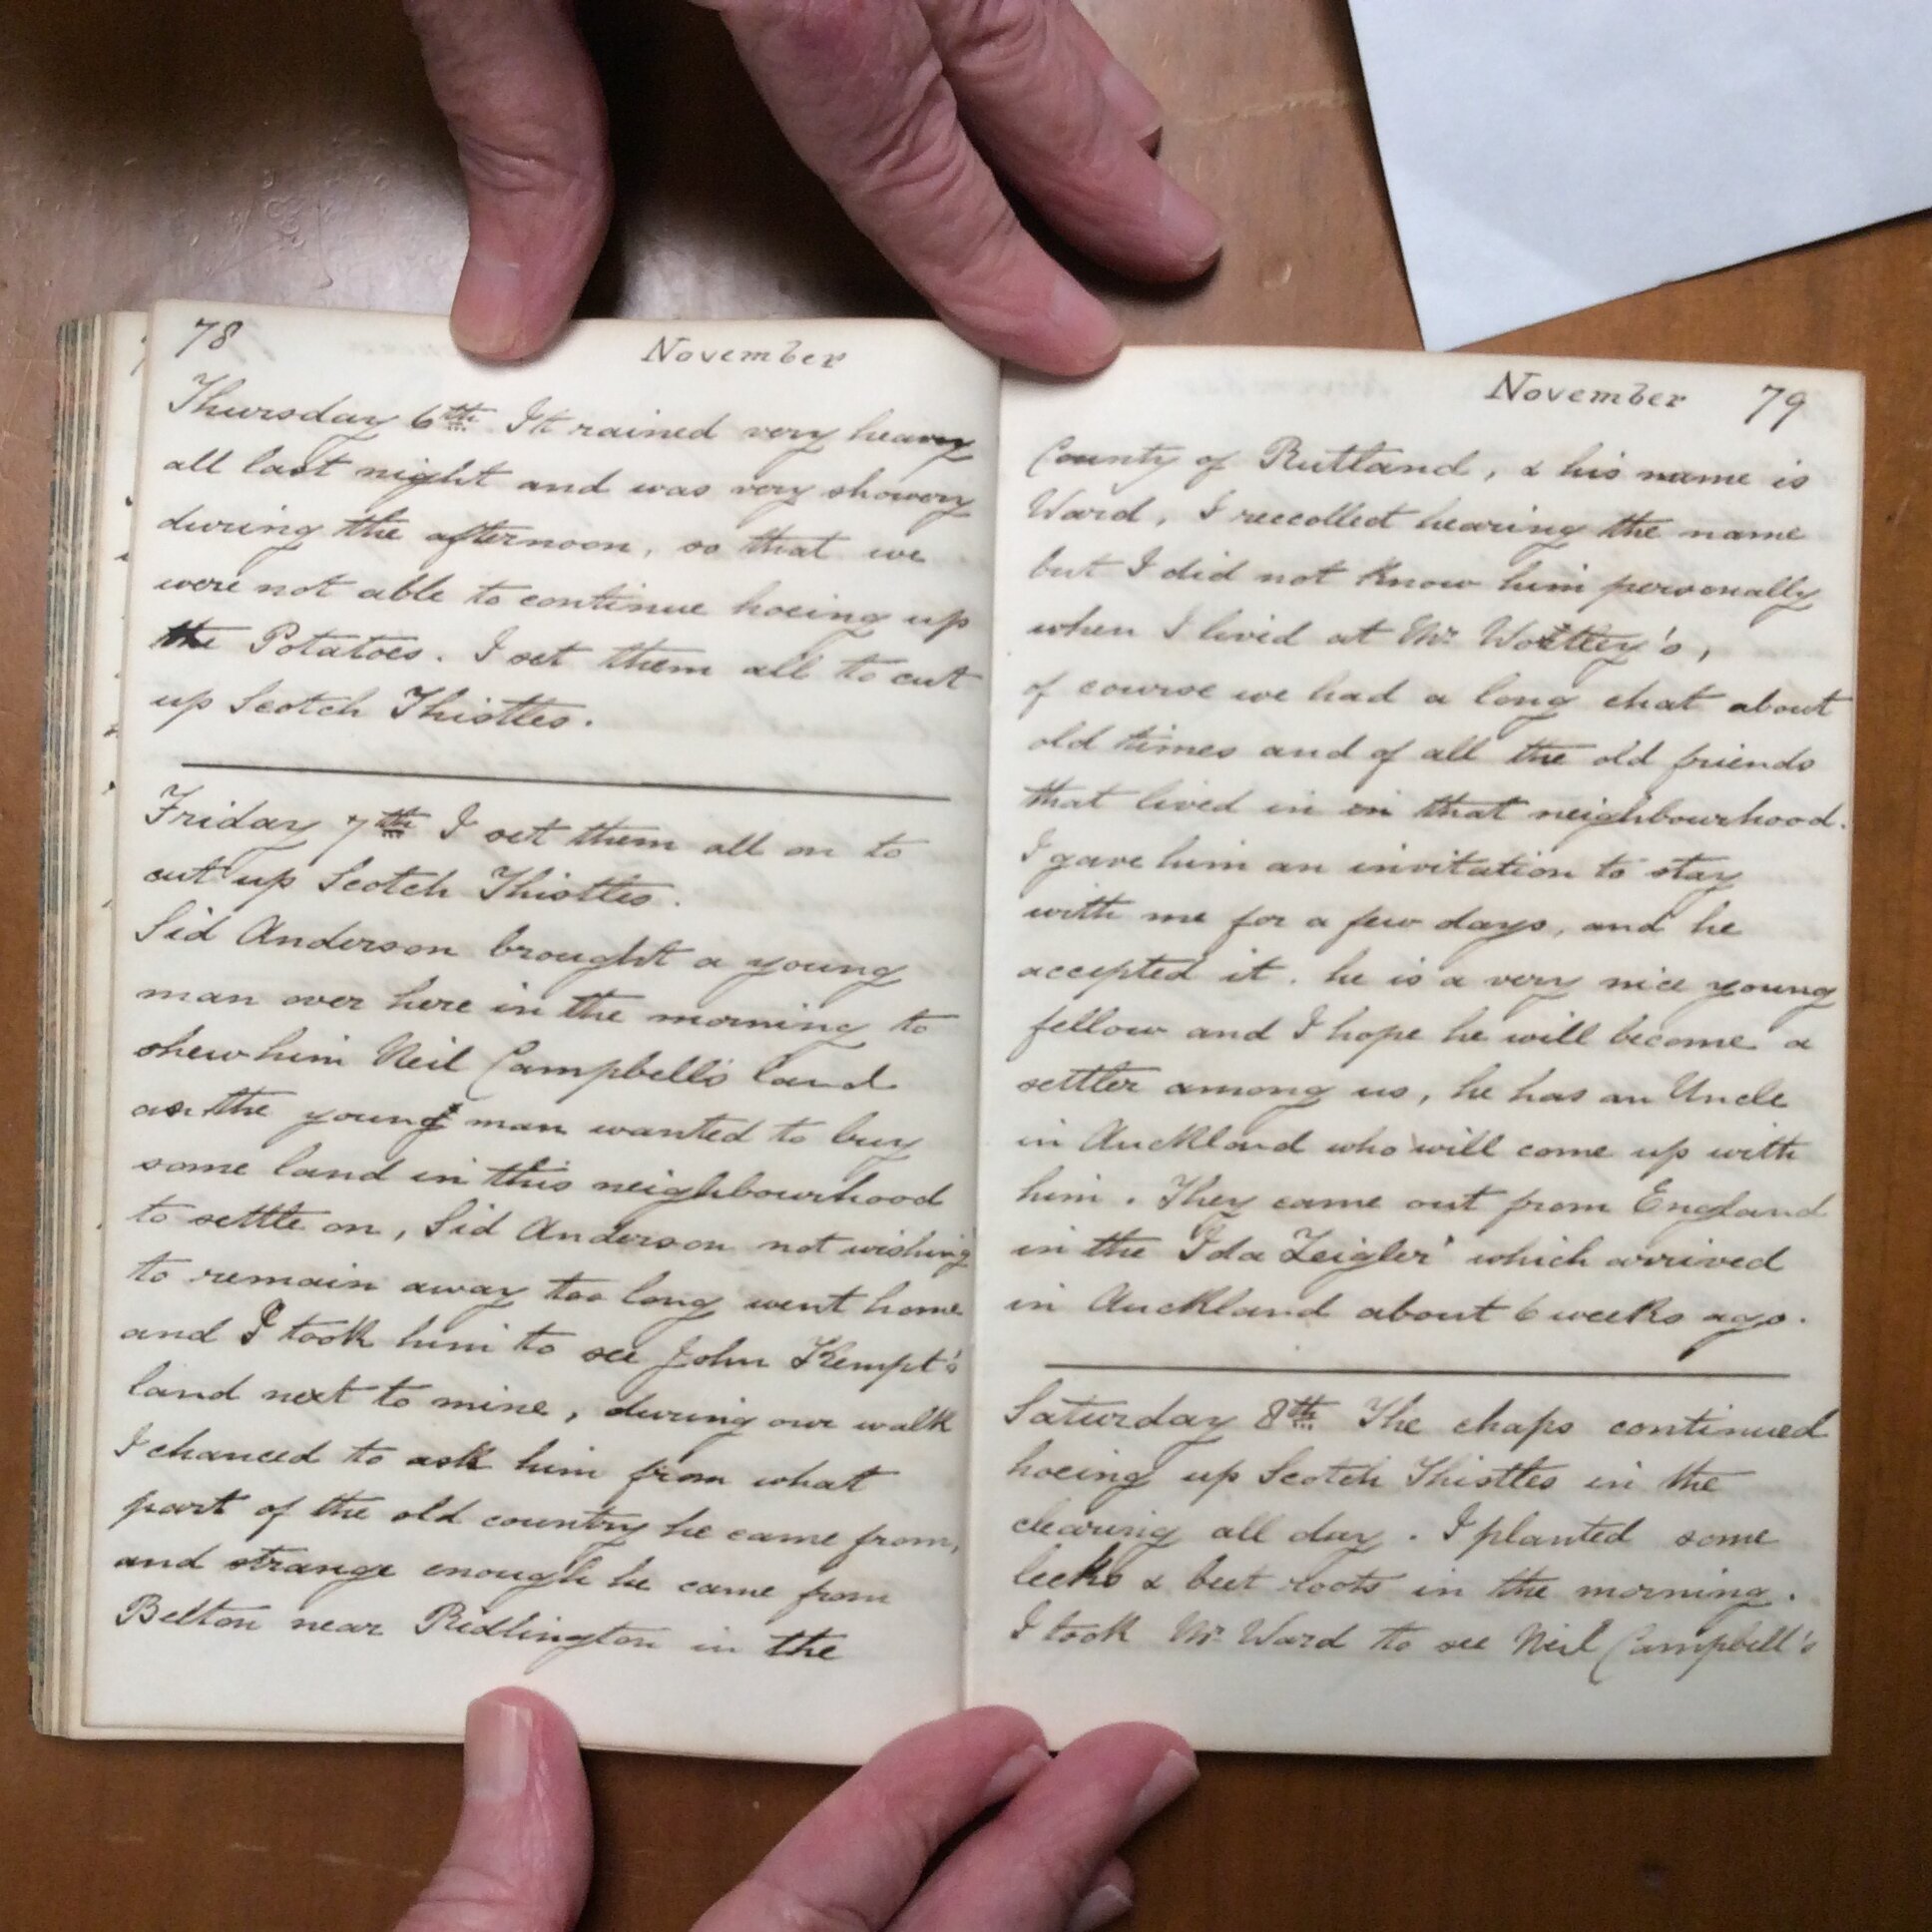 78
November
Thursday 6th It rained very heavy
all last night and was very showery
during the afternoon, so that we
were not able to continue hoeing up
the Potatoes. I set them all to cut
up Scotch Thistles.
Friday 7th I set them all on to
cut up Scotch Thistles.
Sid Anderson brought a young
man over here in the morning to
shew him Neil Campbell's land
as the young man wanted to buy
some land in this neighbourhood
to settle on, Sid Anderson not wishing
to remain away too long went home
and I took him to see John Kempt's
land next to mine, during our walk
I chanced to ask him from what
part of the old country he came from,
and strange enough he came from
Belton near Ridlington in the
November 79
County of Rutland, & his name is
Ward, I reccollect hearing the name
but I did not know him personally
when I lived at Mr Wortley's,
of course we had a long chat about
old times and of all the old friends
that lived in in that neighbourhood.
I gave him an invitation to stay
with me for a few days, and he
accepted it. he is a very nice young
fellow and I hope he will become a
settler among us, he has an Uncle
in Auckland who will come up with
him. They came out from England
in the "Ida Zeigler" which arrived
in Auckland about 6 weeks ago.
Saturday 8th The chaps continued
hoeing up Scotch Thistles in the
clearing all day. I planted some
leeks & beet roots in the morning.
I took Mr Ward to see Neil Campbell's